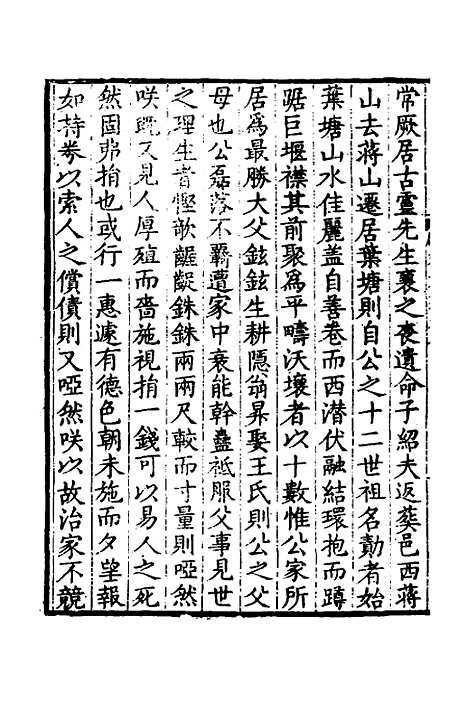 常厥居古靈先生襄之喪遺命子紹夫返葬邑西蔣
山去蔣山遷居葉塘則自公之十二世祖名勣者始
葉塘山水佳麗蓋自善卷而西潛伏融結環抱而蹲
踞巨堰襟其前聚為平疇沃壤者以十數惟公家所
居為最勝大父鉉鉉生耕隱翁昇娶王氏則公之父
母也公磊落不羈遭家中衰能幹蠱祗服父事見世
之理生者慳歌齷齪銖銖兩兩尺較而寸量則啞然
咲既又見人厚殖而嗇施視捐一錢可以易人之死
然固弗捐也或行一惠遽有德色朝未施而夕望報
如持券以索人之償債則又啞然咲以故治家不競